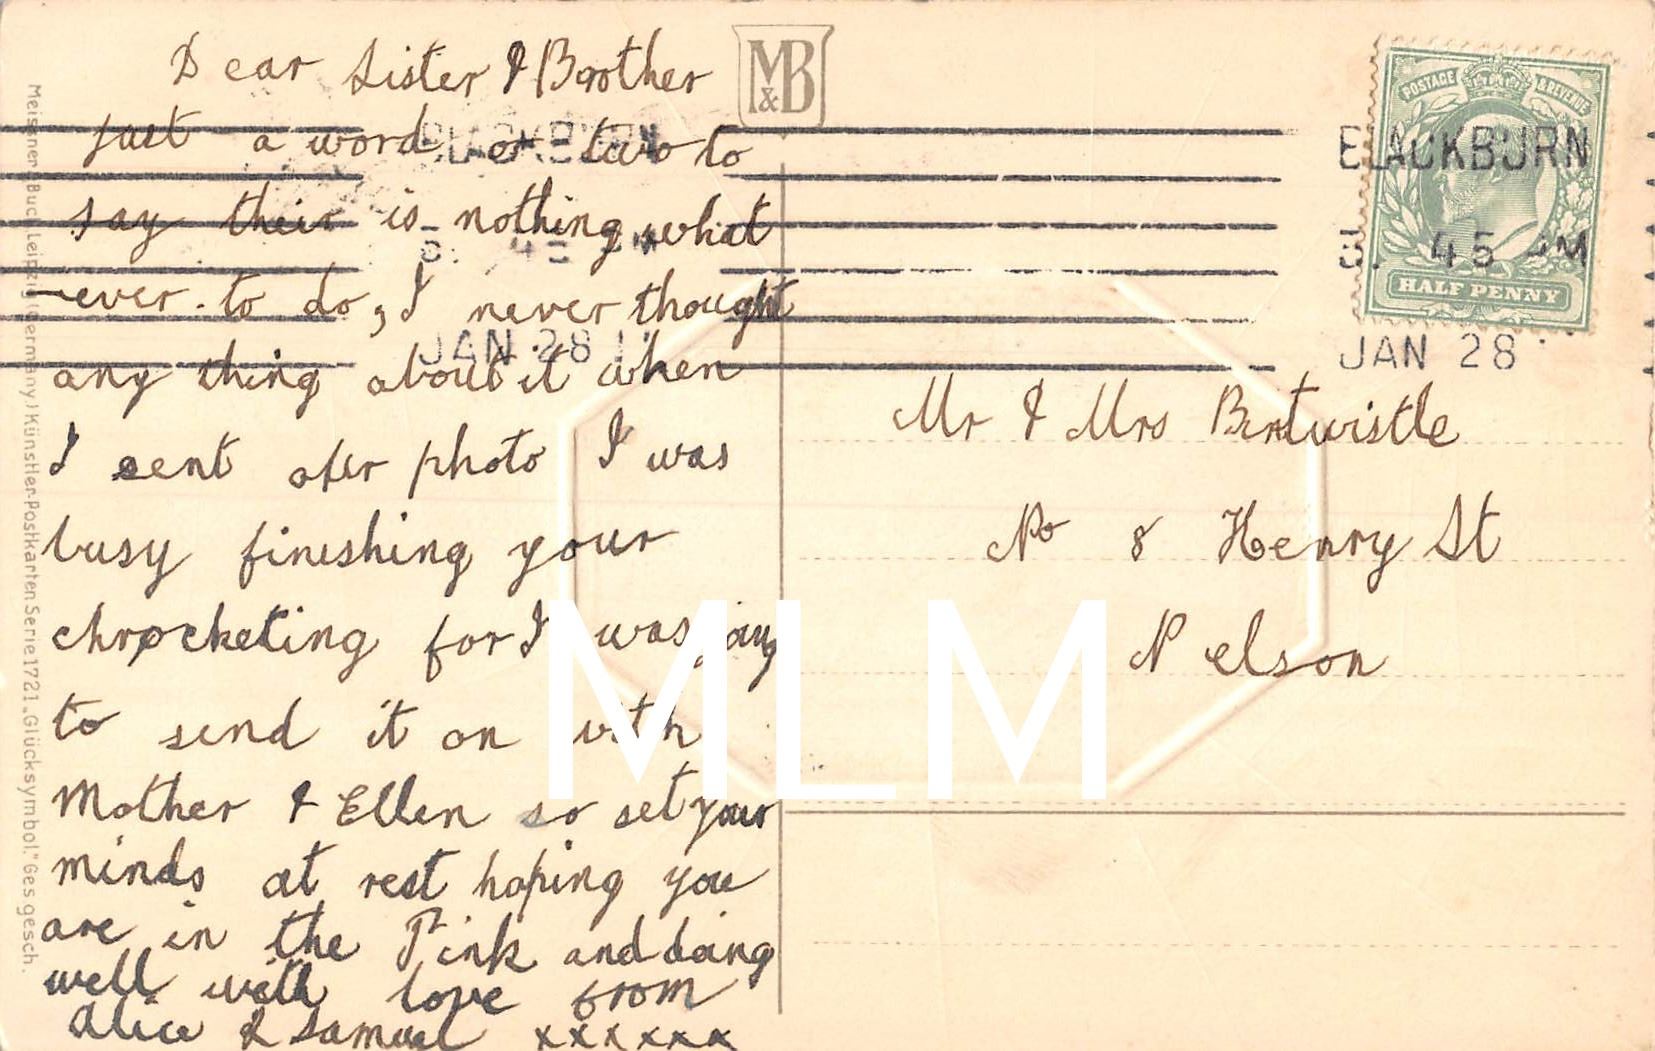 Dear Sister & Brother
just a word or two to
say their is nothing what
-ever to do, I never thought
any thing about it when
I sent ofer photo I was
busy fineshing your
chrocketing for I was going
to send it on with
Mother & Ellen so set your
minds at rest hoping you
are in the Pink and doing
well with love from
Alice & Samuel xxxxxx
M&B
POSTAGE & REVENUE
HALF PENNY
BLACKBURN
45 PM
JAN 28
BLACKBURN
45 PM
JAN 28
Mr & Mrs Birtwistle
No 8 Henry St
Nelson
Meissner & Buch, Leipzig (Germany) Künstler-Postkarten Serie 1721. „Glücksymbol." Ges. gesch.
MLM